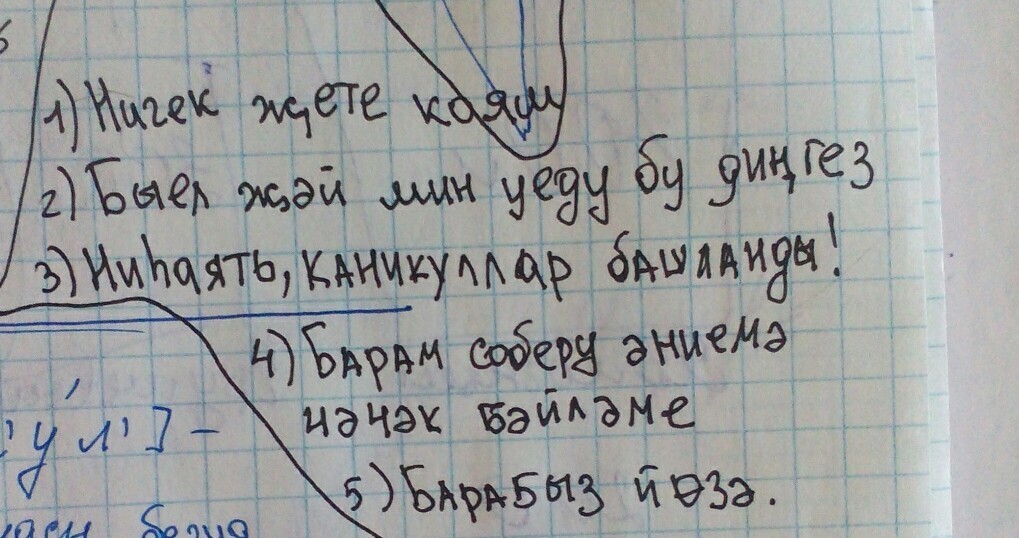 1) Ничек җѳете кояш
2) Быел җәй мин уеду бу диңгез
3) Ниһаять, каникуллар башланды!
4) Барам соберу әниемә
чәчәк бәйләме
['ул'] –
5) Барабыз йөзә.